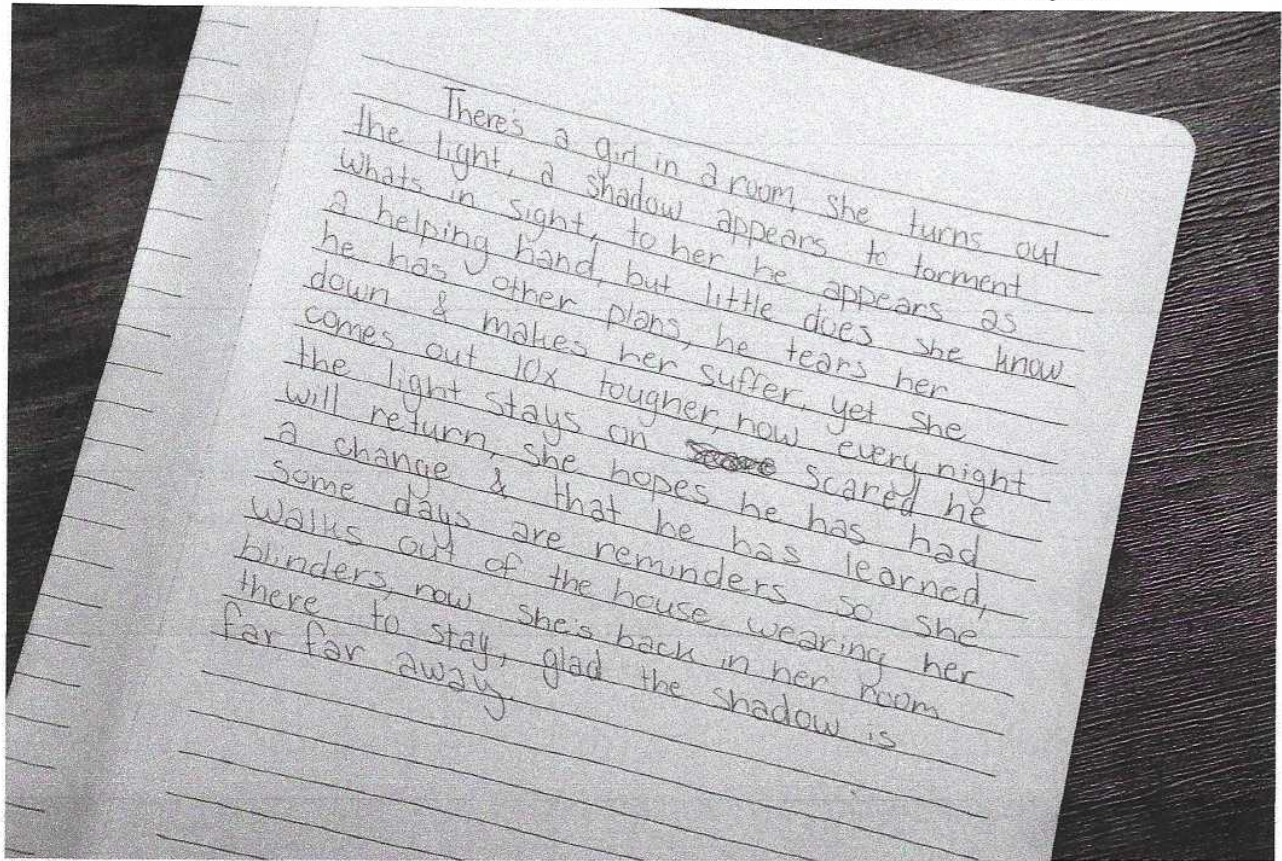 There's a girl in a room, she turns out
the light, a shadow appears to torment
whats in sight, to her he appears as
a helping hand, but little does she know
he has other plans, he tears her
down & makes her suffer, yet she
comes out 10x tougher, now every night
the light stays on scared he
will return, she hopes he has had
a change & that he has learned,
some days are reminders so she
walks out of the house wearing her
blinders, now she's back in her room
there to stay, glad the shadow is
far far away.